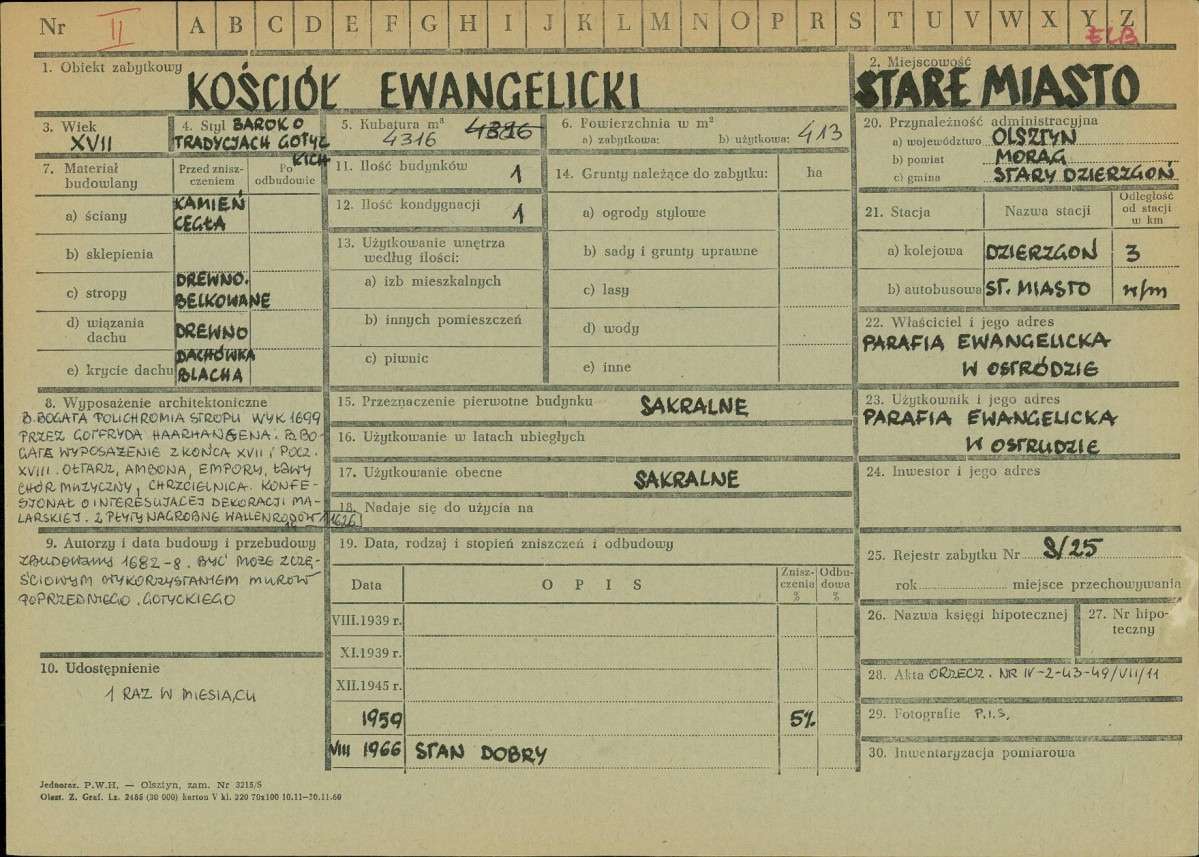 Nr II A B C D E F G H I J K L M N O P R S T U V W X Y Z
ELB
1. Obiekt zabytkowy
KOŚCIÓŁ EWANGELICKI
2. Miejscowość
STARE MIASTO
3. Wiek
XVII
4. Styl BAROK O
TRADYCJACH GOTYC
KICH
5. Kubatura m³ 4316
4316
6. Powierzchnia w m²
a) zabytkowa: b) użytkowa: 413
7. Materiał
budowlany
Przed znisz-
czeniem
Po
odbudowie
a) ściany
KAMIEŃ
CEGŁA
b) sklepienia
c) stropy
DREWNO.
BELKOWANE
d) wiązania
dachu
DREWNO
e) krycie dachu
DACHÓWKA
BLACHA
8. Wyposażenie architektoniczne
B. BOGATA POLICHROMIA STROPU WYK 1699
PRZEZ GOTFRYDA HAARHANSENA. B. BO-
GATE WYPOSAŻENIE Z KOŃCA XVII I POCZ.
XVIII. OŁTARZ, AMBONA, EMPORY, ŁAWY
CHÓR MUZYCZNY, CHRZCIELNICA. KONFE-
SJONAŁ O INTERESUJĄCEJ DEKORACJI MA-
LARSKIEJ. 2 PŁYTY NAGROBNE WALLENRODÓW
1626
9. Autorzy i data budowy i przebudowy
ZBUDOWANY 1682-8. BYĆ MOŻE Z CZĘ-
ŚCIOWYM WYKORZYSTANIEM MURÓW
POPRZEDNIEGO. GOTYCKIEGO
10. Udostępnienie
1 RAZ W MIESIĄCU
11. Ilość budynków 1
12. Ilość kondygnacji 1
13. Użytkowanie wnętrza
według ilości:
a) izb mieszkalnych
b) innych pomieszczeń
c) piwnic
14. Grunty należące do zabytku: ha
a) ogrody stylowe
b) sady i grunty uprawne
c) lasy
d) wody
e) inne
15. Przeznaczenie pierwotne budynku SAKRALNE
16. Użytkowanie w latach ubiegłych
17. Użytkowanie obecne SAKRALNE
18. Nadaje się do użycia na
19. Data, rodzaj i stopień zniszczeń i odbudowy
Data
O P I S
Znisz-
czenia
%
Odbu-
dowa
%
VIII.1939 r.
XI.1939 r.
XII.1945 r.
1959 5%
VIII 1966 STAN DOBRY
20. Przynależność administracyjna
a) województwo OLSZTYN
b) powiat MORĄG
c) gmina STARY DZIERZGOŃ
21. Stacja
Nazwa stacji
Odległość
od stacji
w km
a) kolejowa DZIERZGOŃ 3
b) autobusowa ST. MIASTO w/m
22. Właściciel i jego adres
PARAFIA EWANGELICKA
W OSTRÓDZIE
23. Użytkownik i jego adres
PARAFIA EWANGELICKA
W OSTRUDZIE
24. Inwestor i jego adres
25. Rejestr zabytku Nr S/25
rok miejsce przechowywania
26. Nazwa księgi hipotecznej
27. Nr hipo-
teczny
28. Akta ORZECZ. NR IV-2-43-49/VII/11
29. Fotografie P.I.S.
30. Inwentaryzacja pomiarowa
Jednoraz. P.W.H. — Olsztyn, zam. Nr 3215/S
Olszt. Z. Graf. Lz. 2485 (30 000) karton V kl. 220 70x100 10.11—30.11.60